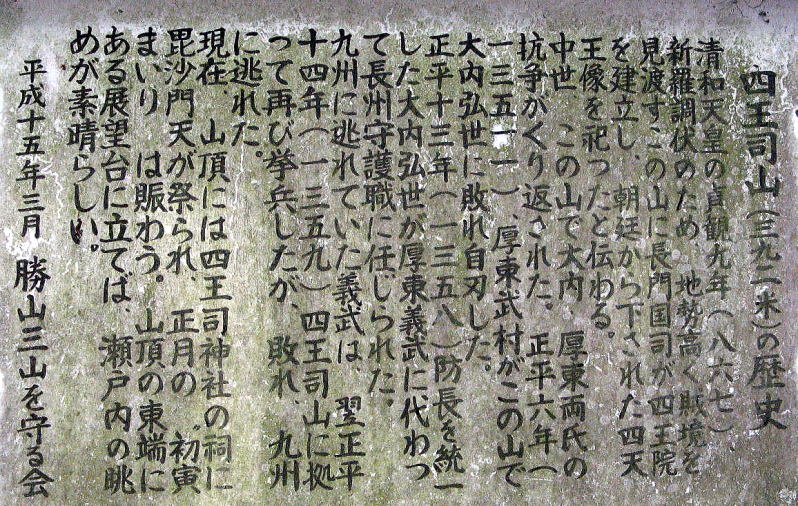 四王司山(三九二米)の歴史
清和天皇の貞観九年(八六七)
新羅調伏のため、地勢高く賊境を
見渡すこの山に長門国司が四王院
を建立し、朝廷から下された四天
王像を祀ったと伝わる。
中世 この山で大内 厚東両氏の
抗争がくり返された。 正平六年(
一三五一)、厚東武村がこの山で
大内弘世に敗れ自刃した。
正平十三年(一三五八)防長を統一
した大内弘世が厚東義武に代わっ
て長州守護職に任じられた。
九州に逃れていた義武は、翌正平
十四年(一三五九)四王司山に拠
って再び挙兵したが、敗れ、九州
に逃れた。
現在、山頂には四王司神社の祠に
毘沙門天が祭られ、正月の 〝初寅
まいり は賑わう。山頂の東端に
ある展望台に立てば、瀬戸内の眺
めが素晴らしい。
平成十五年三月 勝山三山を守る会